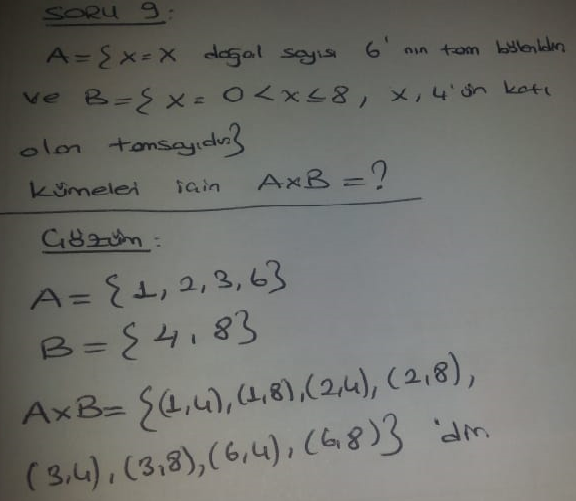 SORU 9:
A={x=x doğal sayısı 6'nın tam bölenidir
ve B={x= 0<x≤8, x, 4'ün katı
olan tamsayıdır}
kümeleri için AxB=?
Çözüm:
A={1,2,3,6}
B={4,8}
AxB={(1,4),(1,8),(2,4),(2,8),
(3,4),(3,8),(6,4),(6,8)}'dır.